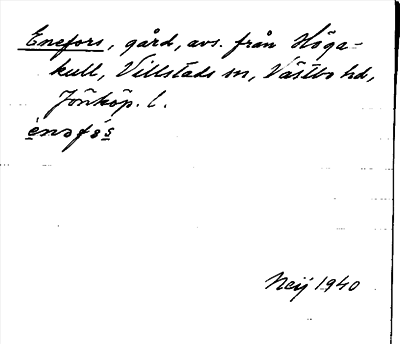 Enefors, gård, avs. från Höga-
kull, Villstads sn, Västbo hd,
Jönköp. l.
enəfɷs
Neij 1940